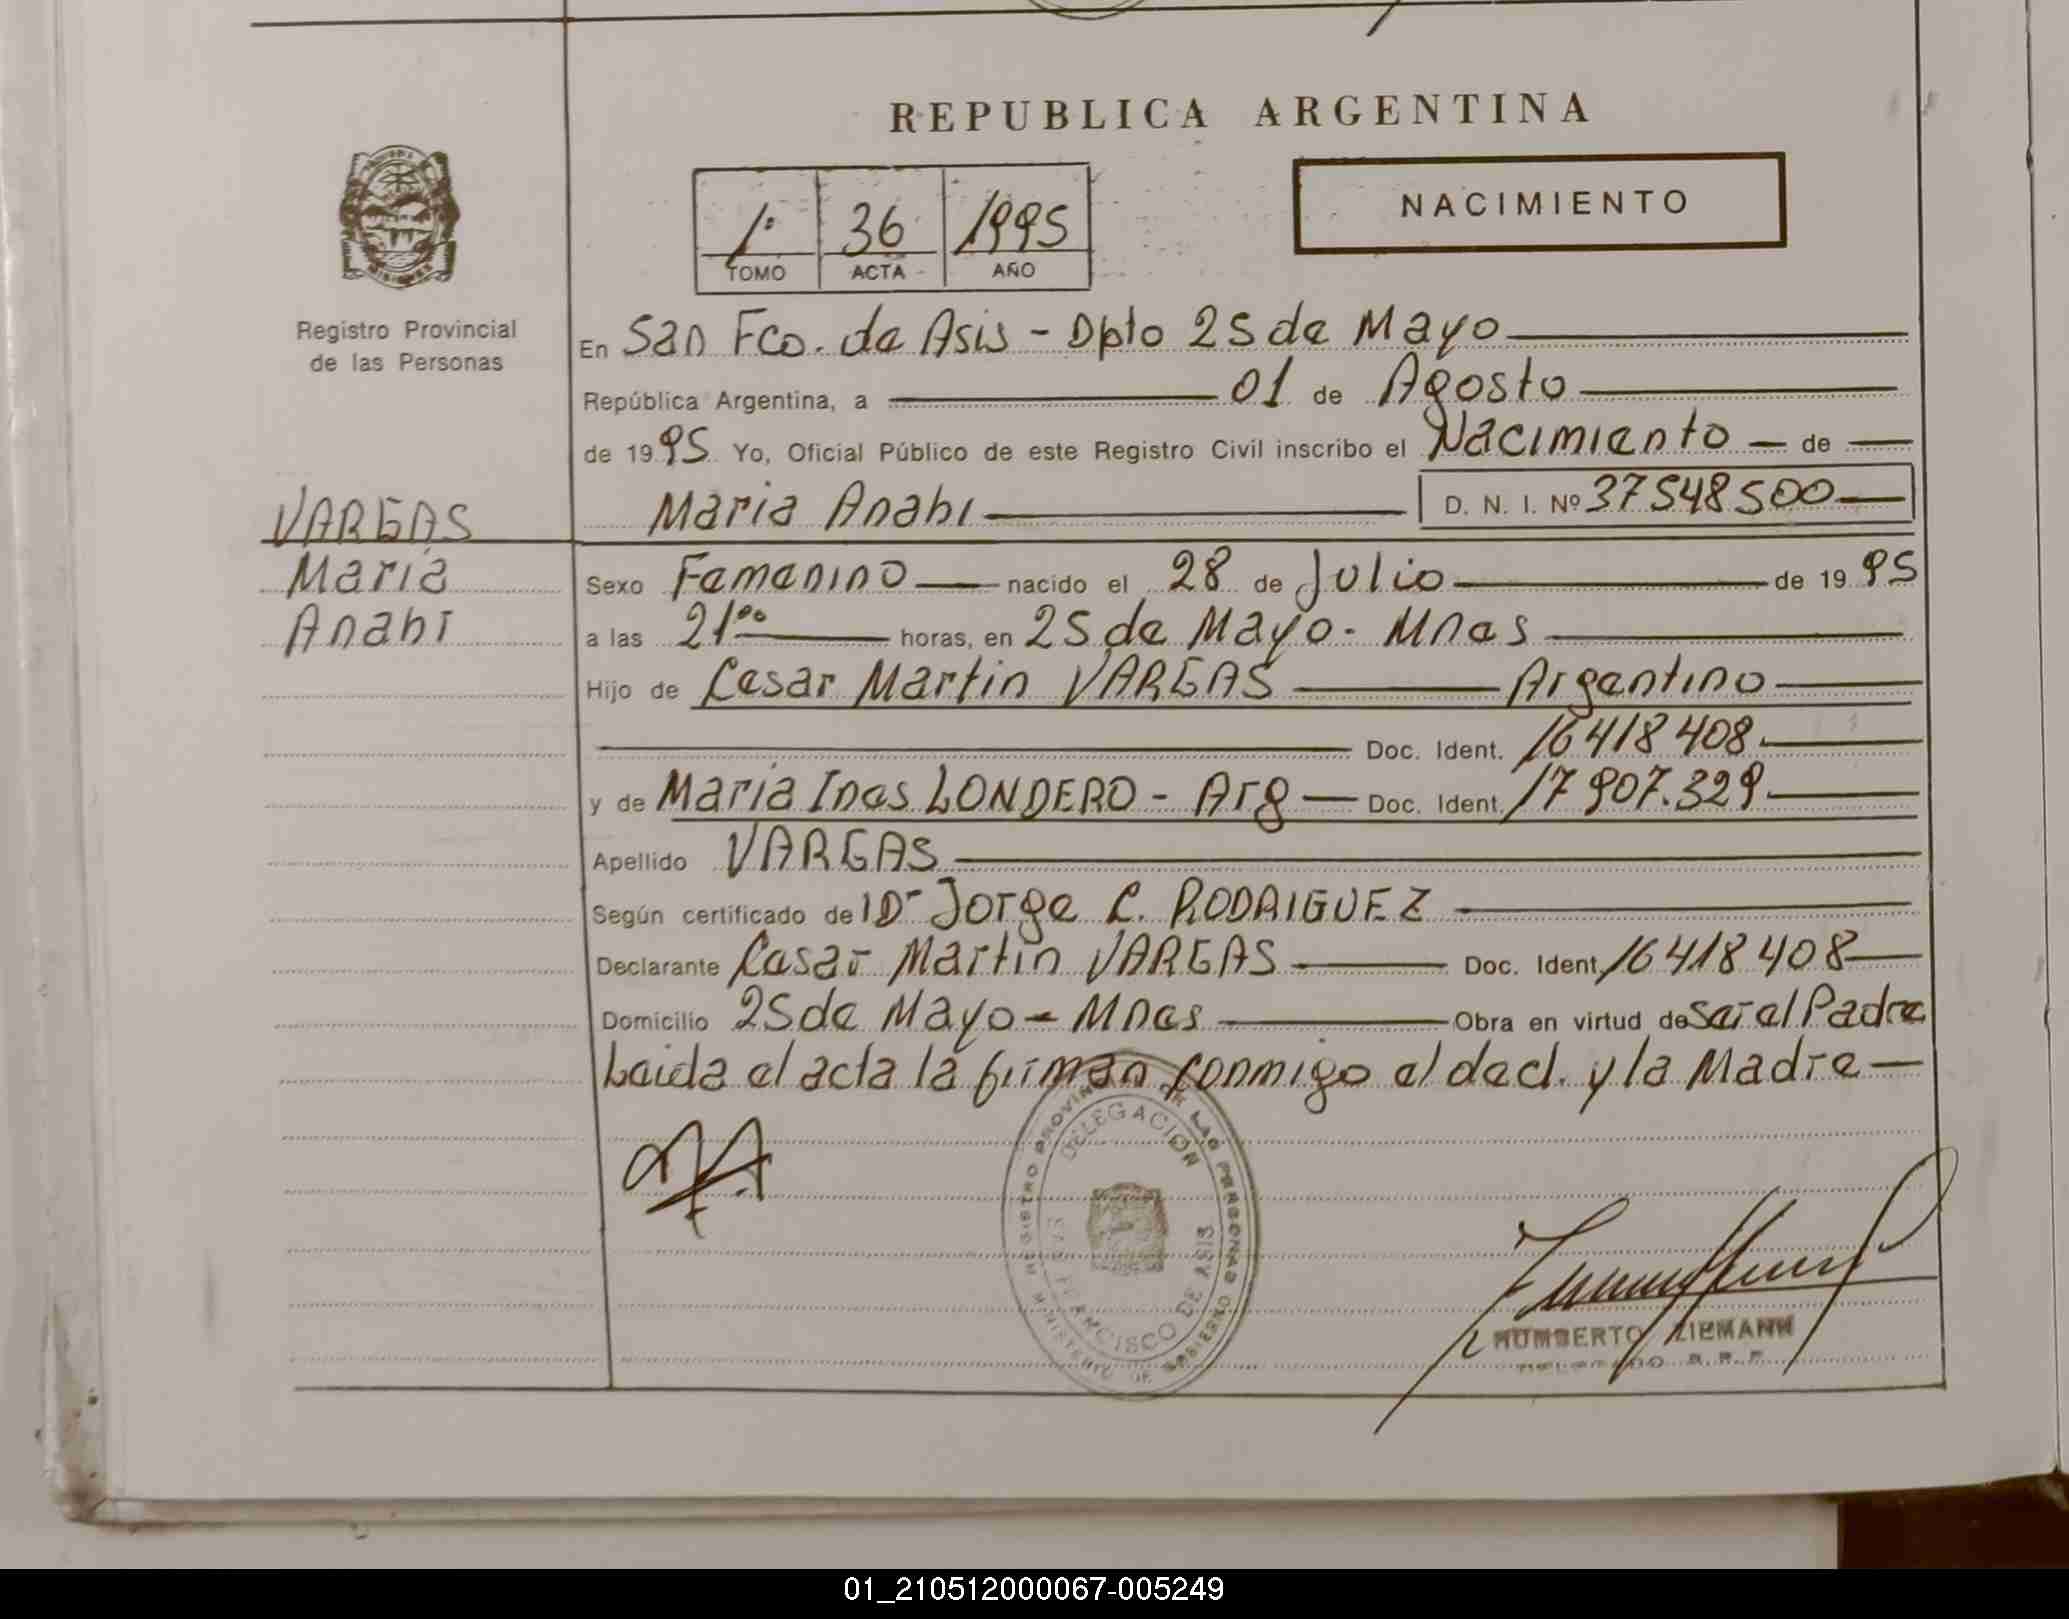 REPUBLICA ARGENTINA
NACIMIENTO
1º 36 1995
TOMO ACTA AÑO
Registro Provincial
de las Personas
En San Fco. de Asis - Dpto 25 de Mayo
República Argentina, a 01 de Agosto
de 1995 Yo, Oficial Público de este Registro Civil inscribo el Nacimiento de
Maria Anahi D. N. I. Nº 37548500
VARGAS
Maria
Anahi
Sexo Femenino nacido el 28 de Julio de 1995
a las 21⁰⁰ horas, en 25 de Mayo - Mnes
Hijo de Cesar Martin VARGAS Argentino
Doc. Ident. 16418408
y de Maria Ines LONDERO - Arg Doc. Ident. 17907.329
Apellido VARGAS
Según certificado de Dr Jorge C. RODRIGUEZ
Declarante Cesar Martin VARGAS Doc. Ident. 16418408
Domicilio 25 de Mayo - Mnes Obra en virtud de Ser el Padre
Leida el acta la firman conmigo el decl. y la Madre
REGISTRO PROVINCIAL DE LAS PERSONAS
DELEGACION
SAN FRANCISCO DE ASIS
MINISTERIO DE GOBIERNO
HUMBERTO ZIEMANN
01_210512000067-005249